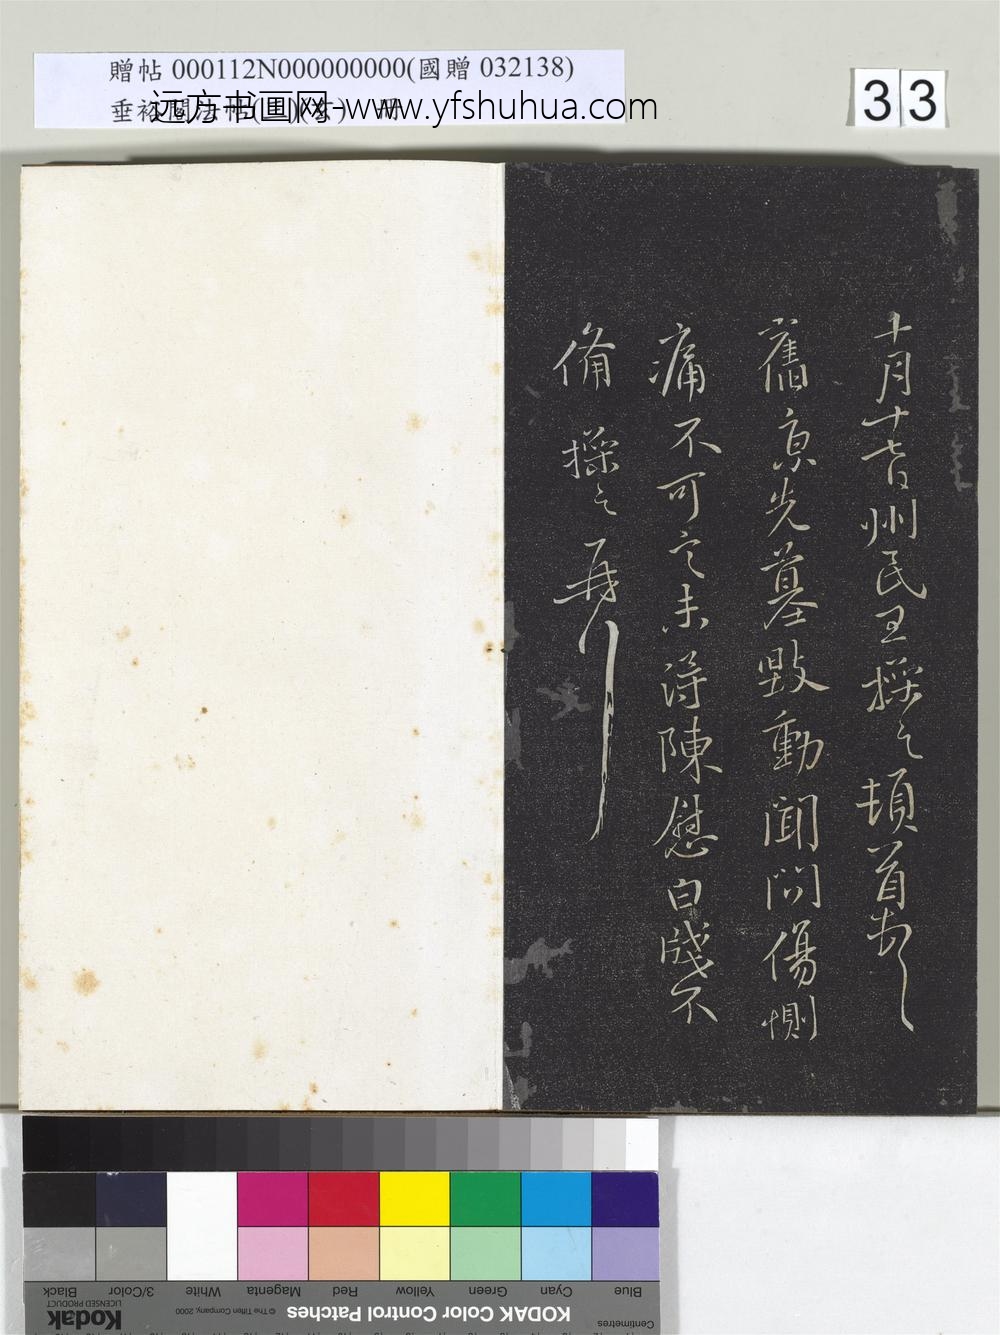 贈帖 000112N000000000(國贈 032138)
远方书画网--www.yfshuhua.com
33
十月十七日州民王操之頓首
舊京先墓毀動聞問傷惻
痛不可言未得陳慰白牋不
備 操之再拜
Blue Cyan Green Yellow Red Magenta White 3/Color Black
Centimetres
KODAK Color Control Patches
© The Tiffen Company, 2000
Kodak
LICENSED PRODUCT